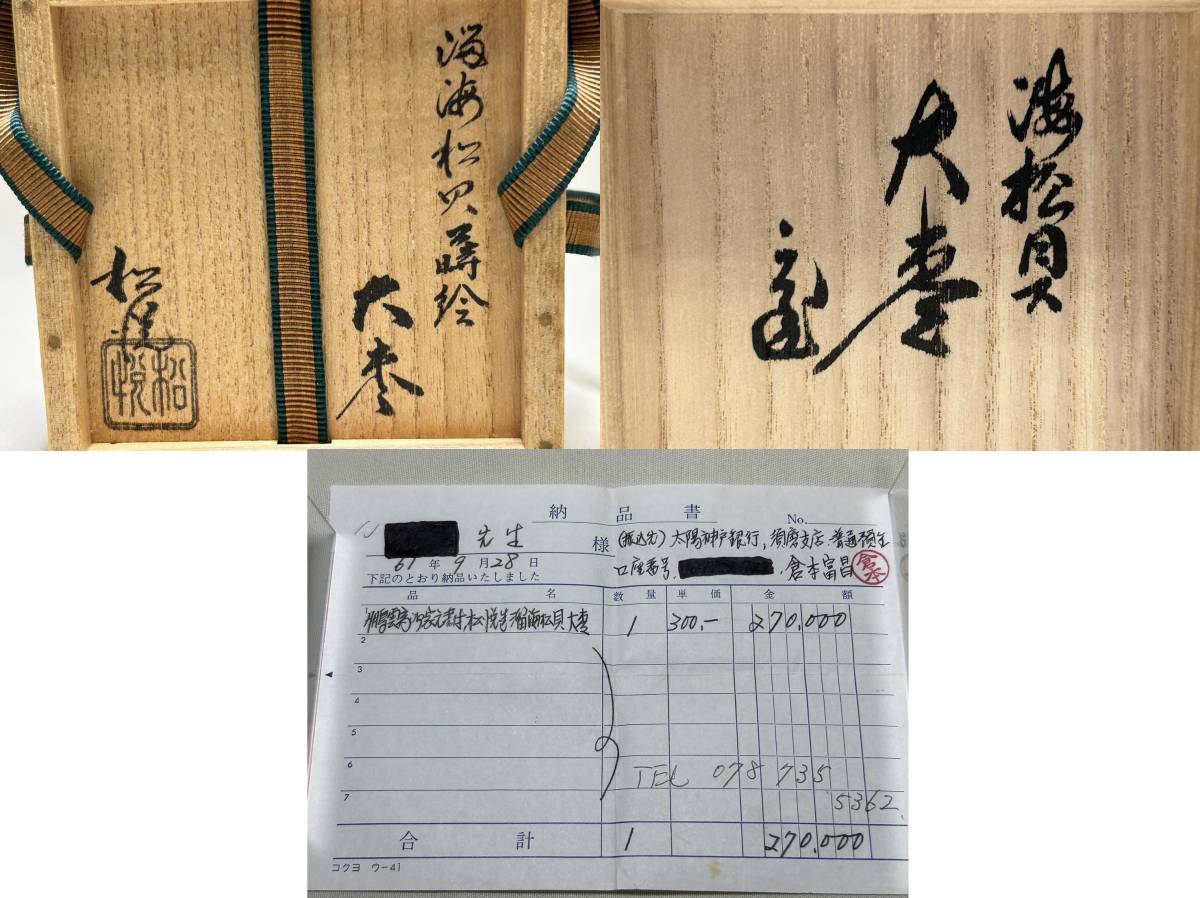 溜海松貝蒔絵
大棗
松悦
松悦
海松貝
大棗
納品書
No.
先生
様
(振込先) 太陽神戸銀行, 須磨支店 普通預金
口座番号, 倉本富昌
倉本
61年9月28日
下記のとおり納品いたしました
品名 数量 単価 金額
松悦造 溜海松貝大棗 1 300,- 270,000
2
3
4
5
6
TEL 078 735
7
5362
合計 1 270,000
コクヨ ウ-41